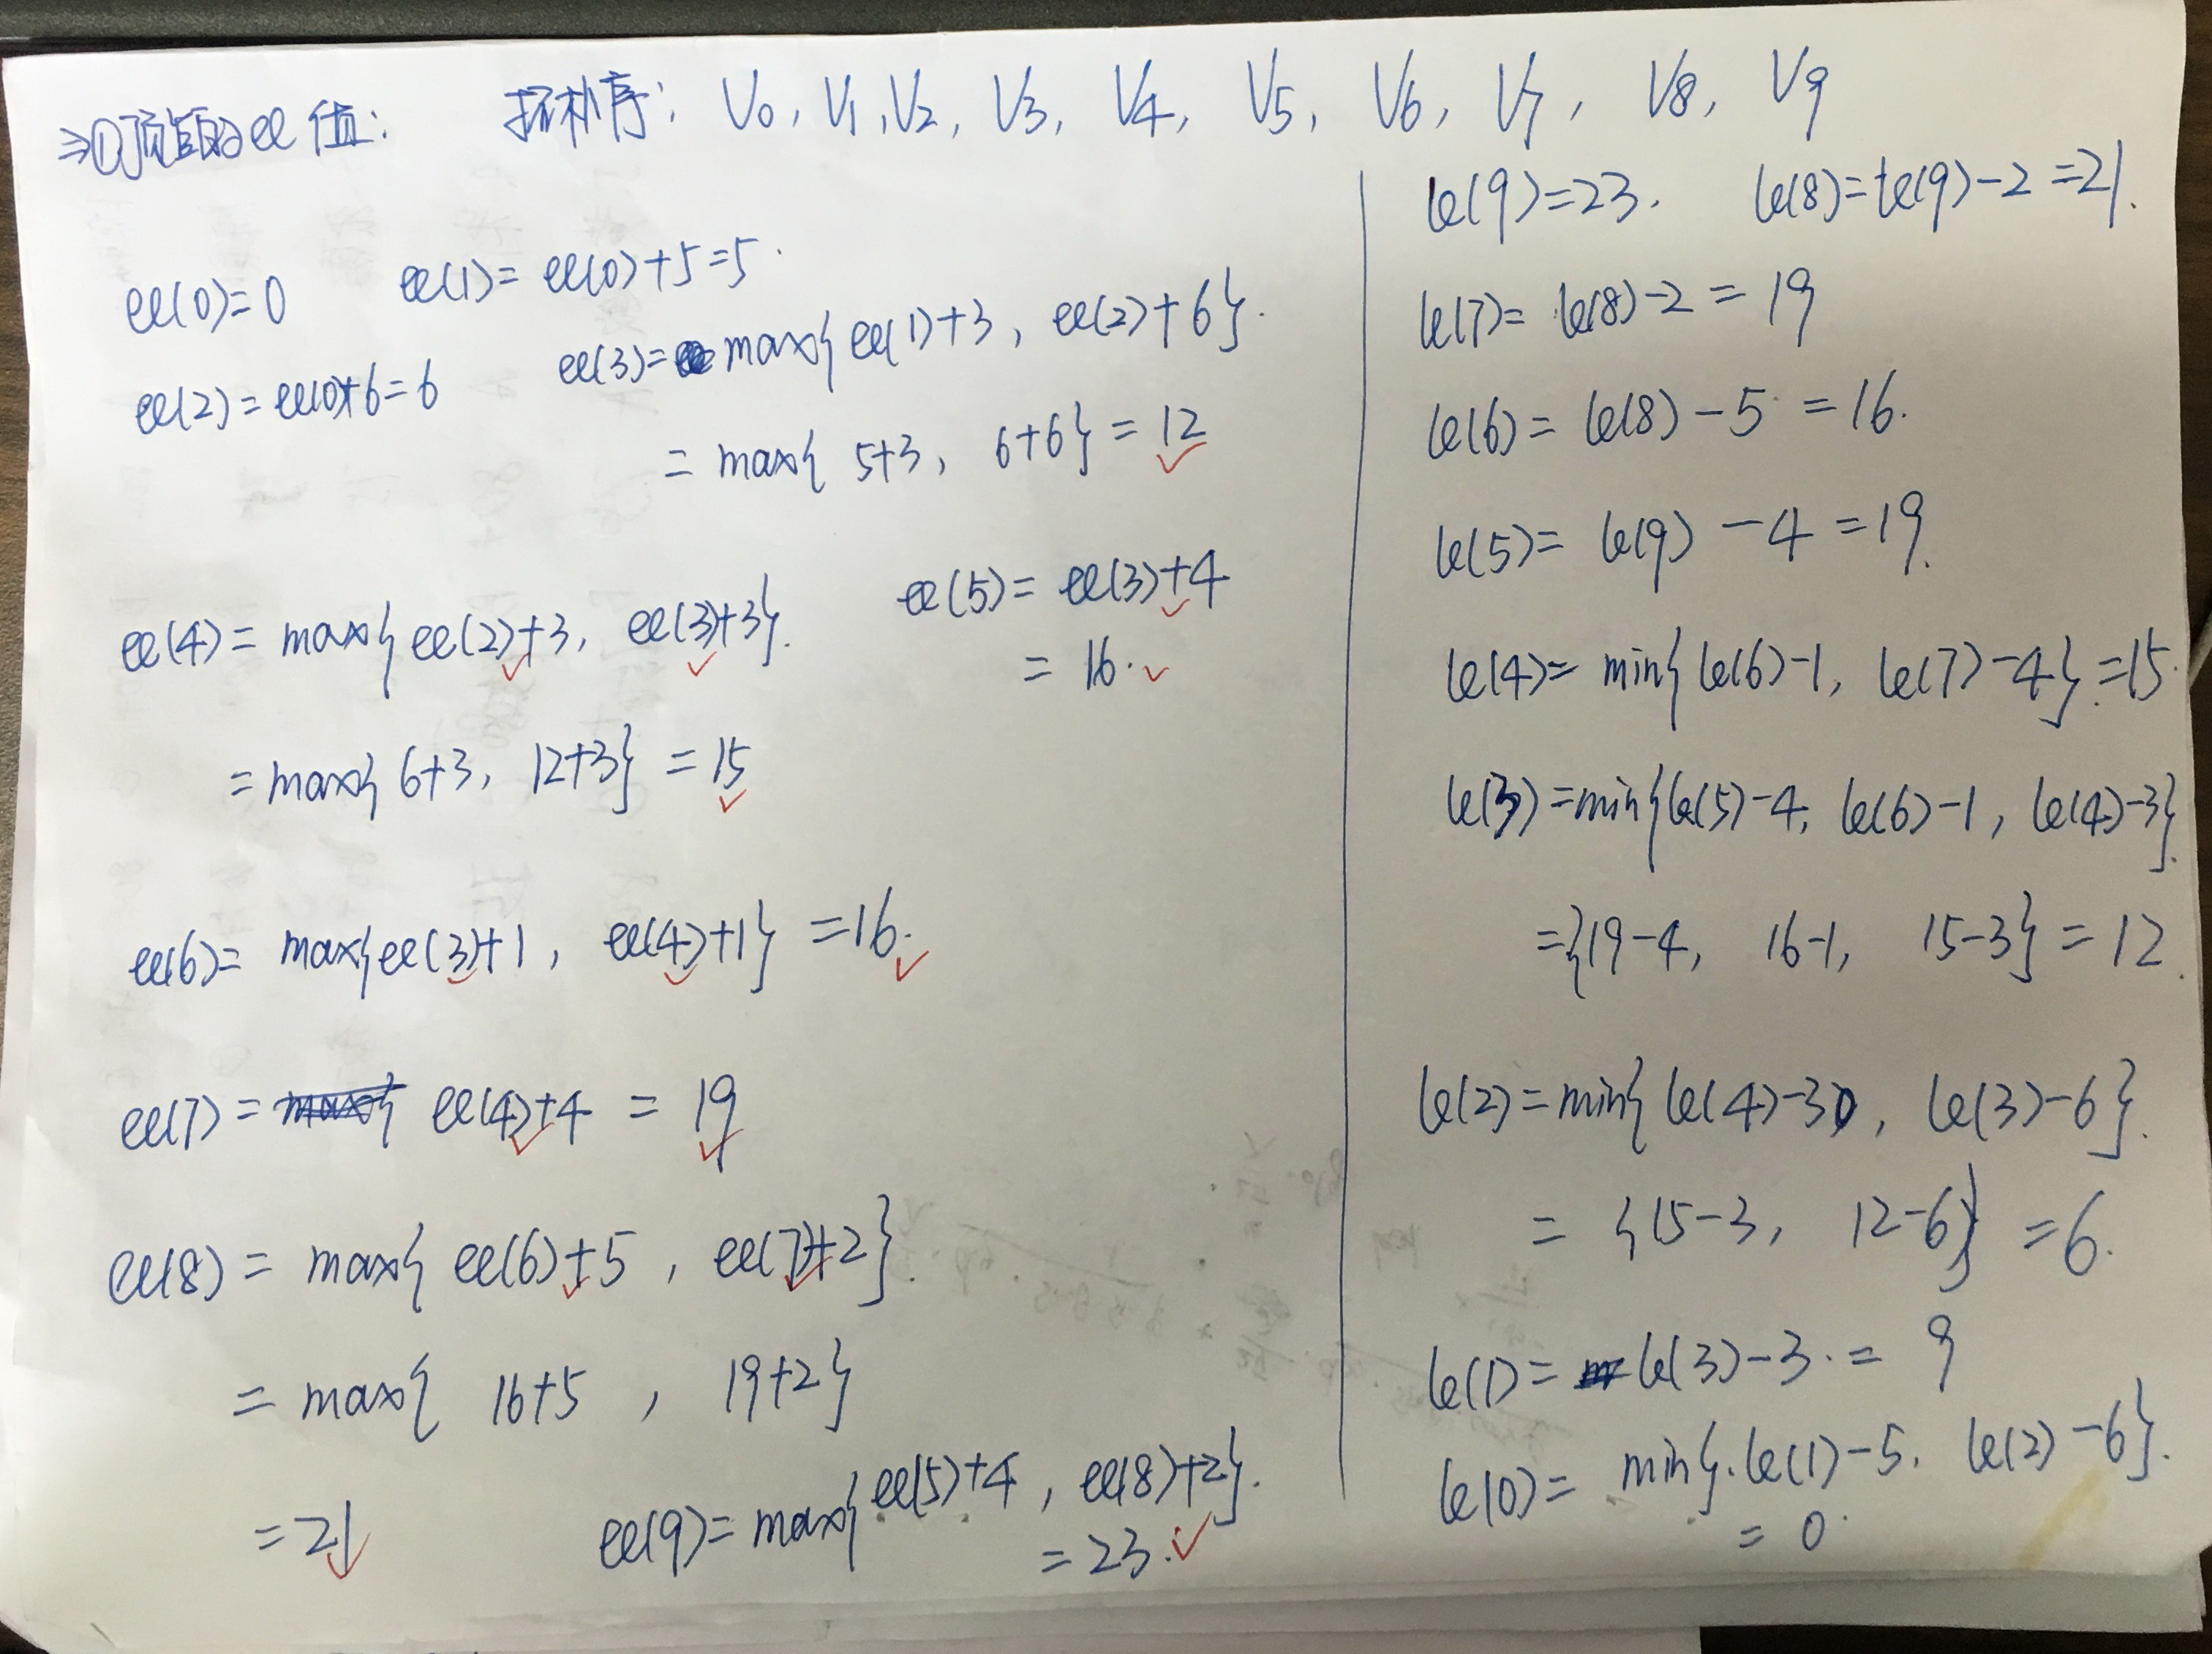 ⇒①顶点的ee值: 拓朴序: V0, V1, V2, V3, V4, V5, V6, V7, V8, V9
ee(0)=0 ee(1)= ee(0)+5=5.
ee(2)=ee(0)+6=6 ee(3)= max{ee(1)+3, ee(2)+6}.
= max{ 5+3, 6+6} = 12
ee(4)= max{ee(2)+3, ee(3)+3}. ee(5)= ee(3)+4
= 16.
=max{ 6+3, 12+3} = 15
ee(6)= max{ee(3)+1, ee(4)+1} =16.
ee(7)= ee(4)+4 = 19
ee(8)= max{ ee(6)+5, ee(7)+2}.
= max{ 16+5, 19+2}
=21 ee(9)= max{ee(5)+4, ee(8)+2}.
=23.
le(9)=23. le(8)=le(9)-2=21.
le(7)= le(8)-2= 19
le(6)= le(8)-5=16.
le(5)= le(9)-4=19.
le(4)= min{le(6)-1, le(7)-4}=15.
le(3)=min{le(5)-4, le(6)-1, le(4)-3}.
={19-4, 16-1, 15-3}= 12.
le(2)=min{le(4)-3, le(3)-6}.
= {15-3, 12-6} =6.
le(1)= le(3)-3.= 9
le(0)= min{.le(1)-5. le(2)-6}.
= 0.